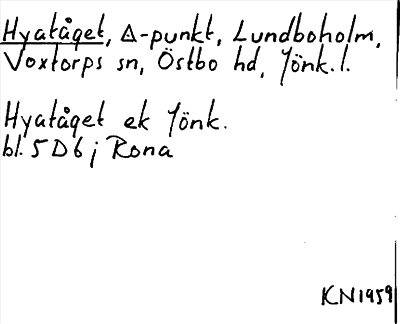 Hyatåget, Δ-punkt, Lundboholm,
Voxtorps sn, Östbo hd, Jönk. l.
Hyatåget ek Jönk.
bl. 5 D 6 j Rona
KN1959